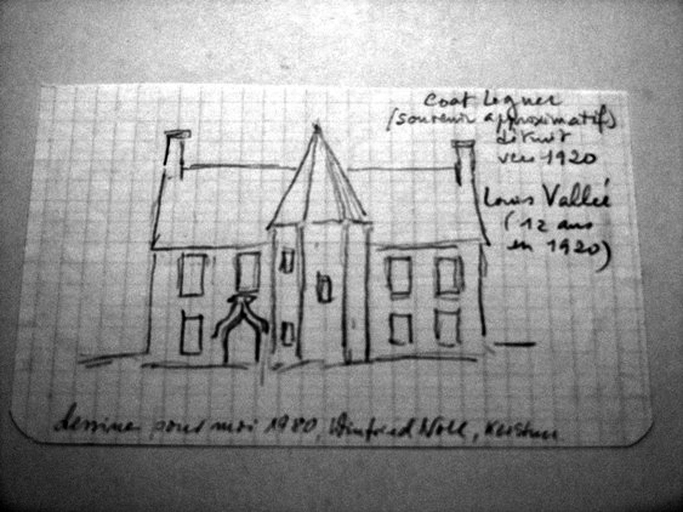 Coat Legner
(souvenir approximatif)
détruit
vers 1920
Louis Vallée
(12 ans
en 1920)
dessiné pour moi 1980, Winfried Noll,